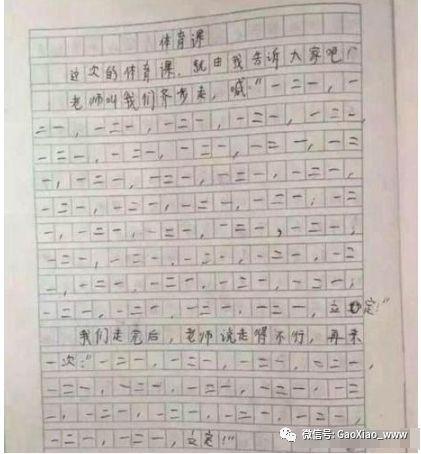 体育课
这次的体育课,就由我告诉大家吧!
老师叫我们齐步走,喊:"一二一,一
二一,一二一,一二一,一二一,一二一,
一二一,一二一,一二一,一二一,一二
一,一二一,一二一,一二一,一二一,
一二一,一二一,一二一,一二一,一二
一,一二一,一二一,一二一,一二一,
一二一,一二一,一二一,一二一,一二
一,一二一,一二一,一二一,一二一,
一二一,一二一,一二一,一二一,立定!"
我们走完后,老师说走得不行,再来
一次:"一二一,一二一,一二一,一二一,
一二一,一二一,一二一,一二一,一二
一,一二一,一二一,一二一,一二一,
一二一,一二一,立定!"
微信号: GaoXiao_www